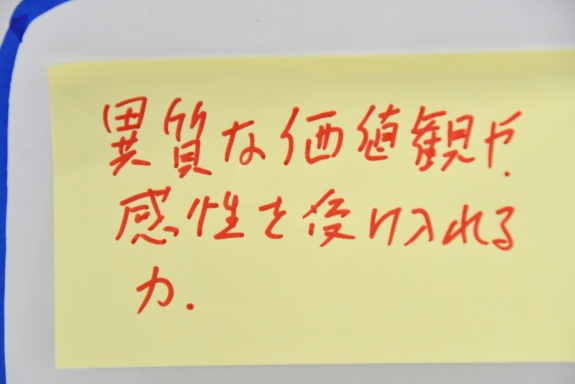 異質な価値観や.
感性を受け入れる
力.